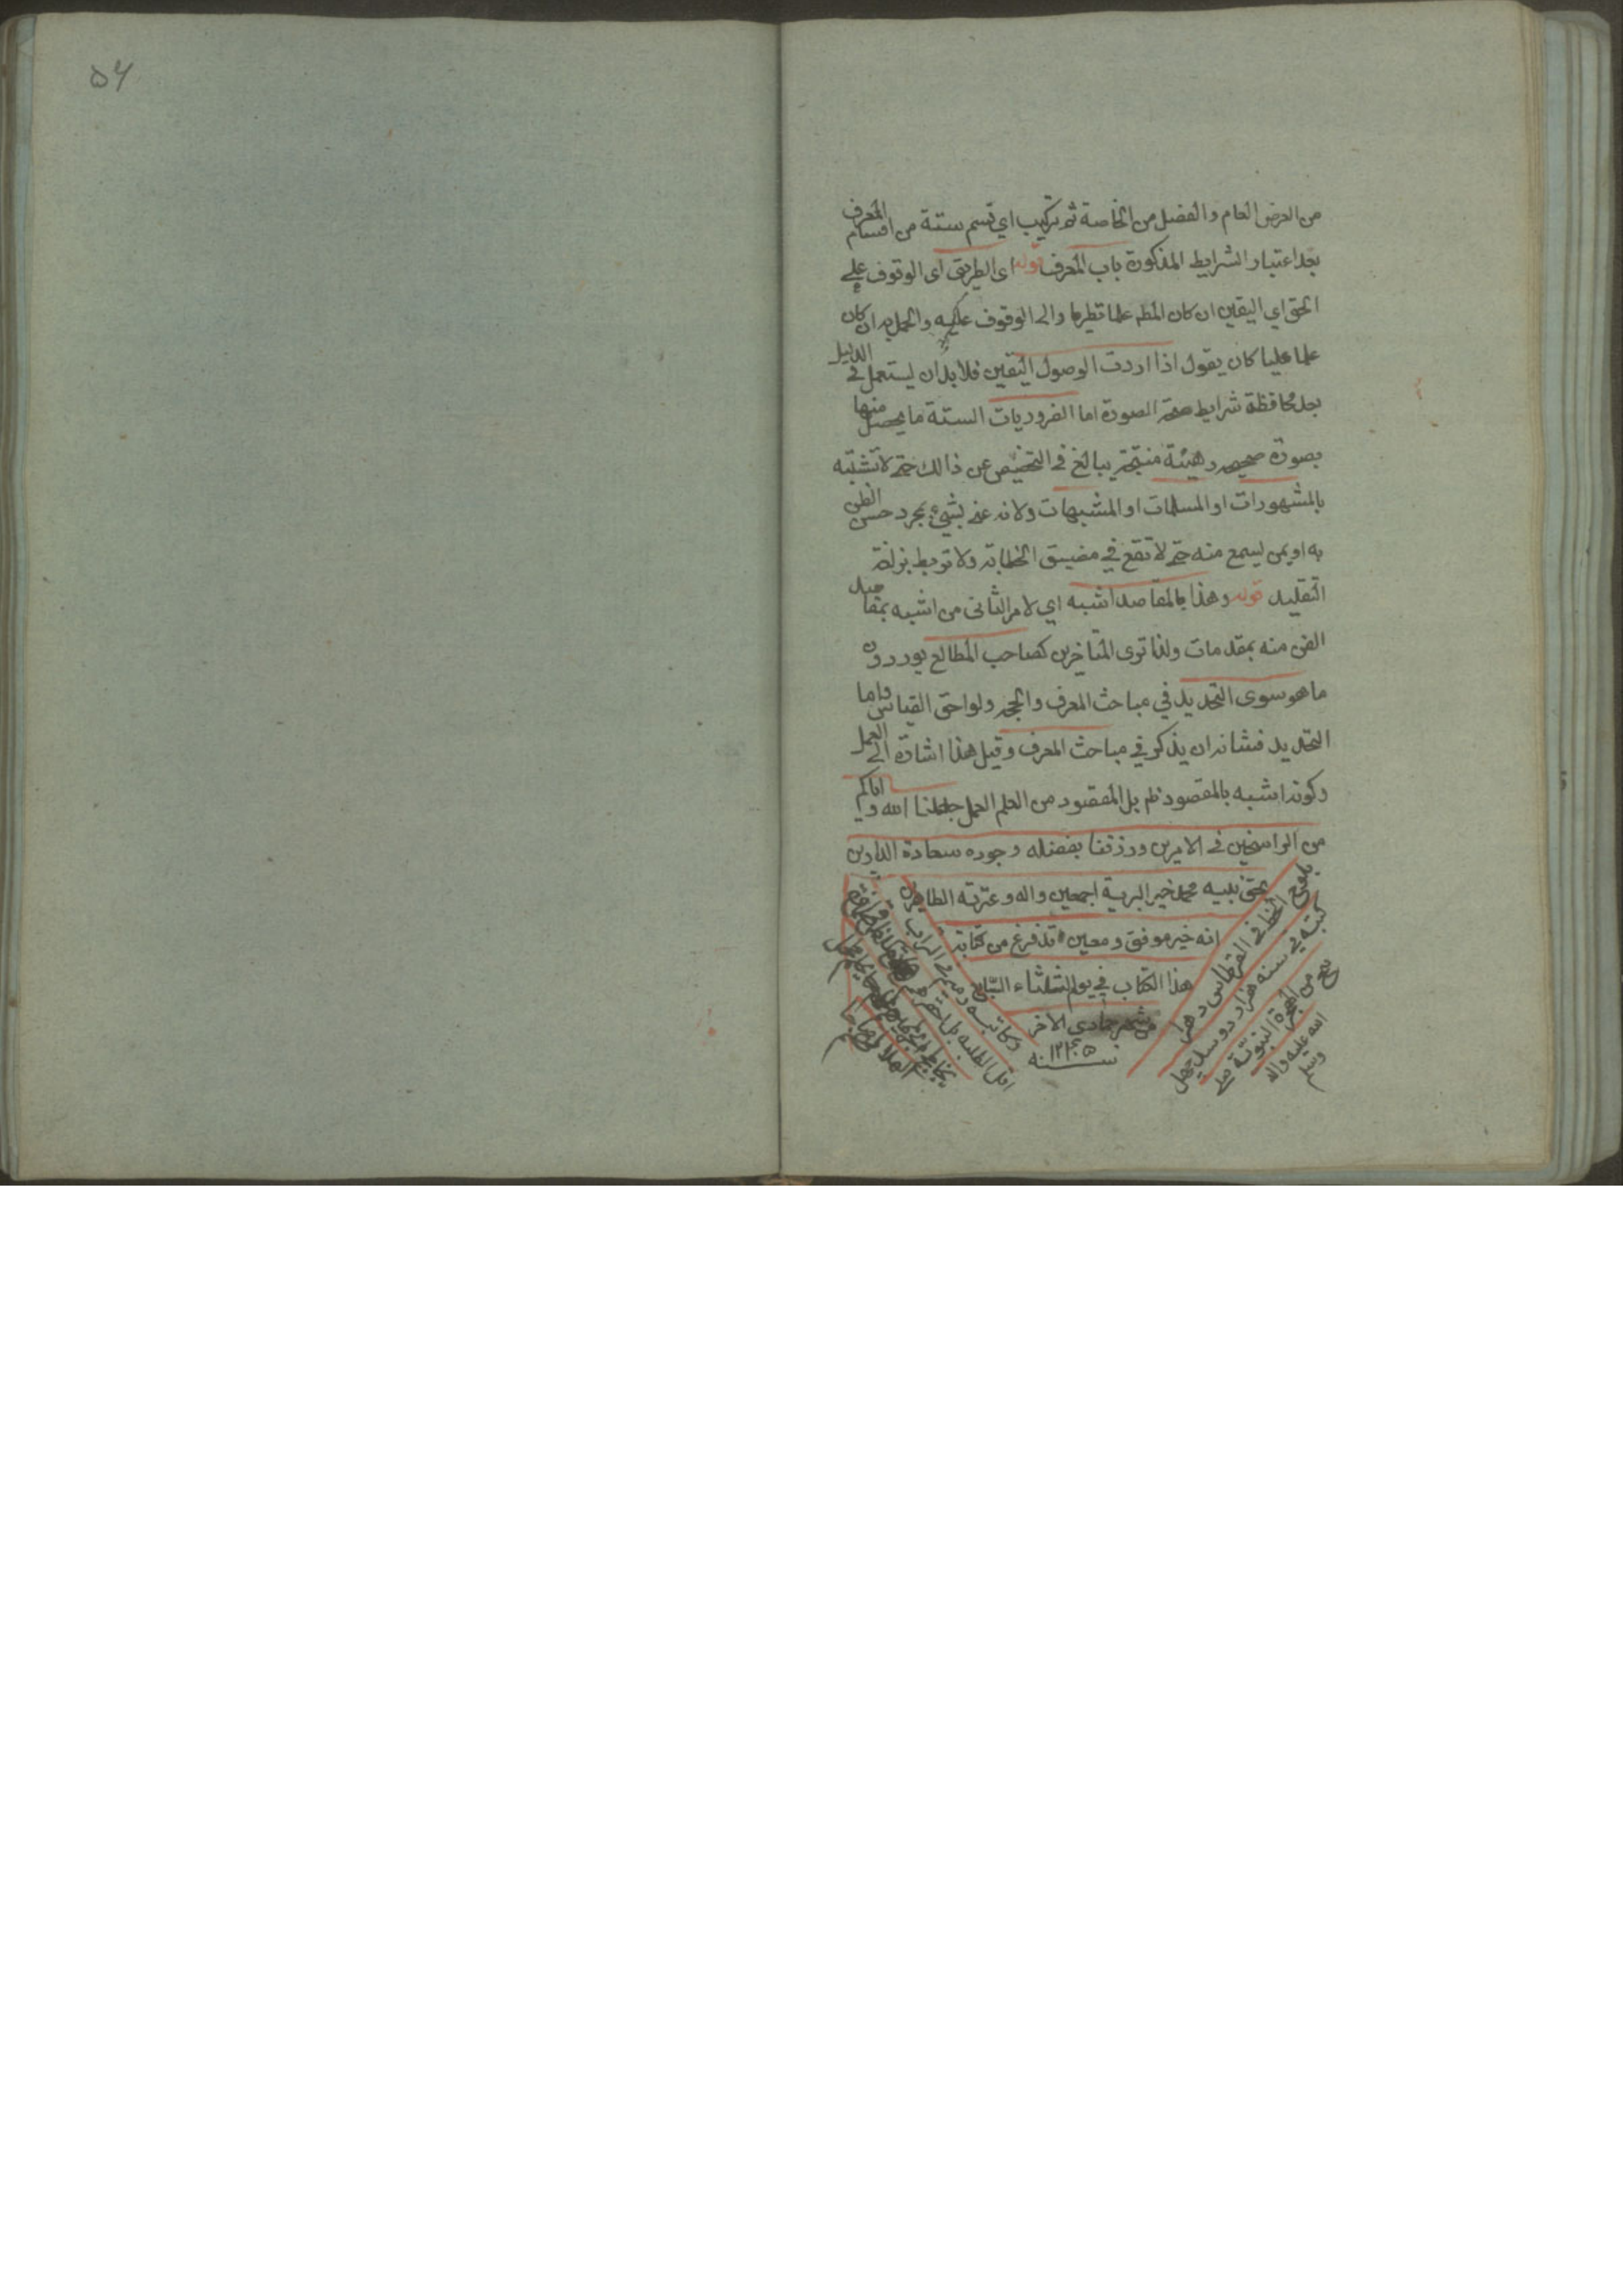 ۵۶
من العرض العام و الفصل من الخاصة ثم تركيب اي قسم ستة من اقسام المعرف
بعد اعتبار الشرايط المذكورة باب المعرف قوله اى الطريق اى الوقوف على
الحق اي اليقين ان كان المط علما نظريا والى الوقوف عليه والعمل به ان كان
علما عمليا كان يقول اذا اردت الوصول اليقين فلا بد ان يستعمل فى الدليل
بعد محافظة شرايط صحة الصورة اما الضروريات الستة ما يحصل منها
بصورة صحيحه و هيئة منتجة يبالغ فى التفحص عن ذالك حتى لا تشتبه
بالمشهورات او المسلمات او المشبهات ولا بشيء بمجرد حسن الظن
به او بمن يسمع منه حتى لا تقع في مضيق الخطابة ولا تربط بزلفة
التقليد قوله وهذا بالمقاصد اشبه اي لامر الثانى من اشبه بمقاصد
الفن منه بمقدمات ولذا ترى المتاخرين كصاحب المطالع يوردون
ما هو سوى التحديد في مباحث المعرف والحجة ولواحق القياس واما
التحديد فشانه ان يذكر في مباحث المعرف وقيل هذا اشارة الى العمل
وكونه اشبه بالمقصود ظم بل المقصود من العلم العمل جعلنا الله و اياكم
من الراسخين فى الامرين ورزقنا بفضله وجوده سعادة الدارين
بحق نبيه محمد خير البرية اجمعين واله وعترته الطاهرين
انه خير موفق و معين قد فرغ من كتابة
هذا الكتاب في يوم الثلثاء
من شهر جمادى الاخر
سنه ۱۲۴۰
يلوح الخط فى القرطاس دهرا
وكاتبه رميم فى التراب
كتبه في سنه هزار دوست چهل
من الهجرة النبوية صلى
الله عليه واله
وسلم
اقل الطلبه